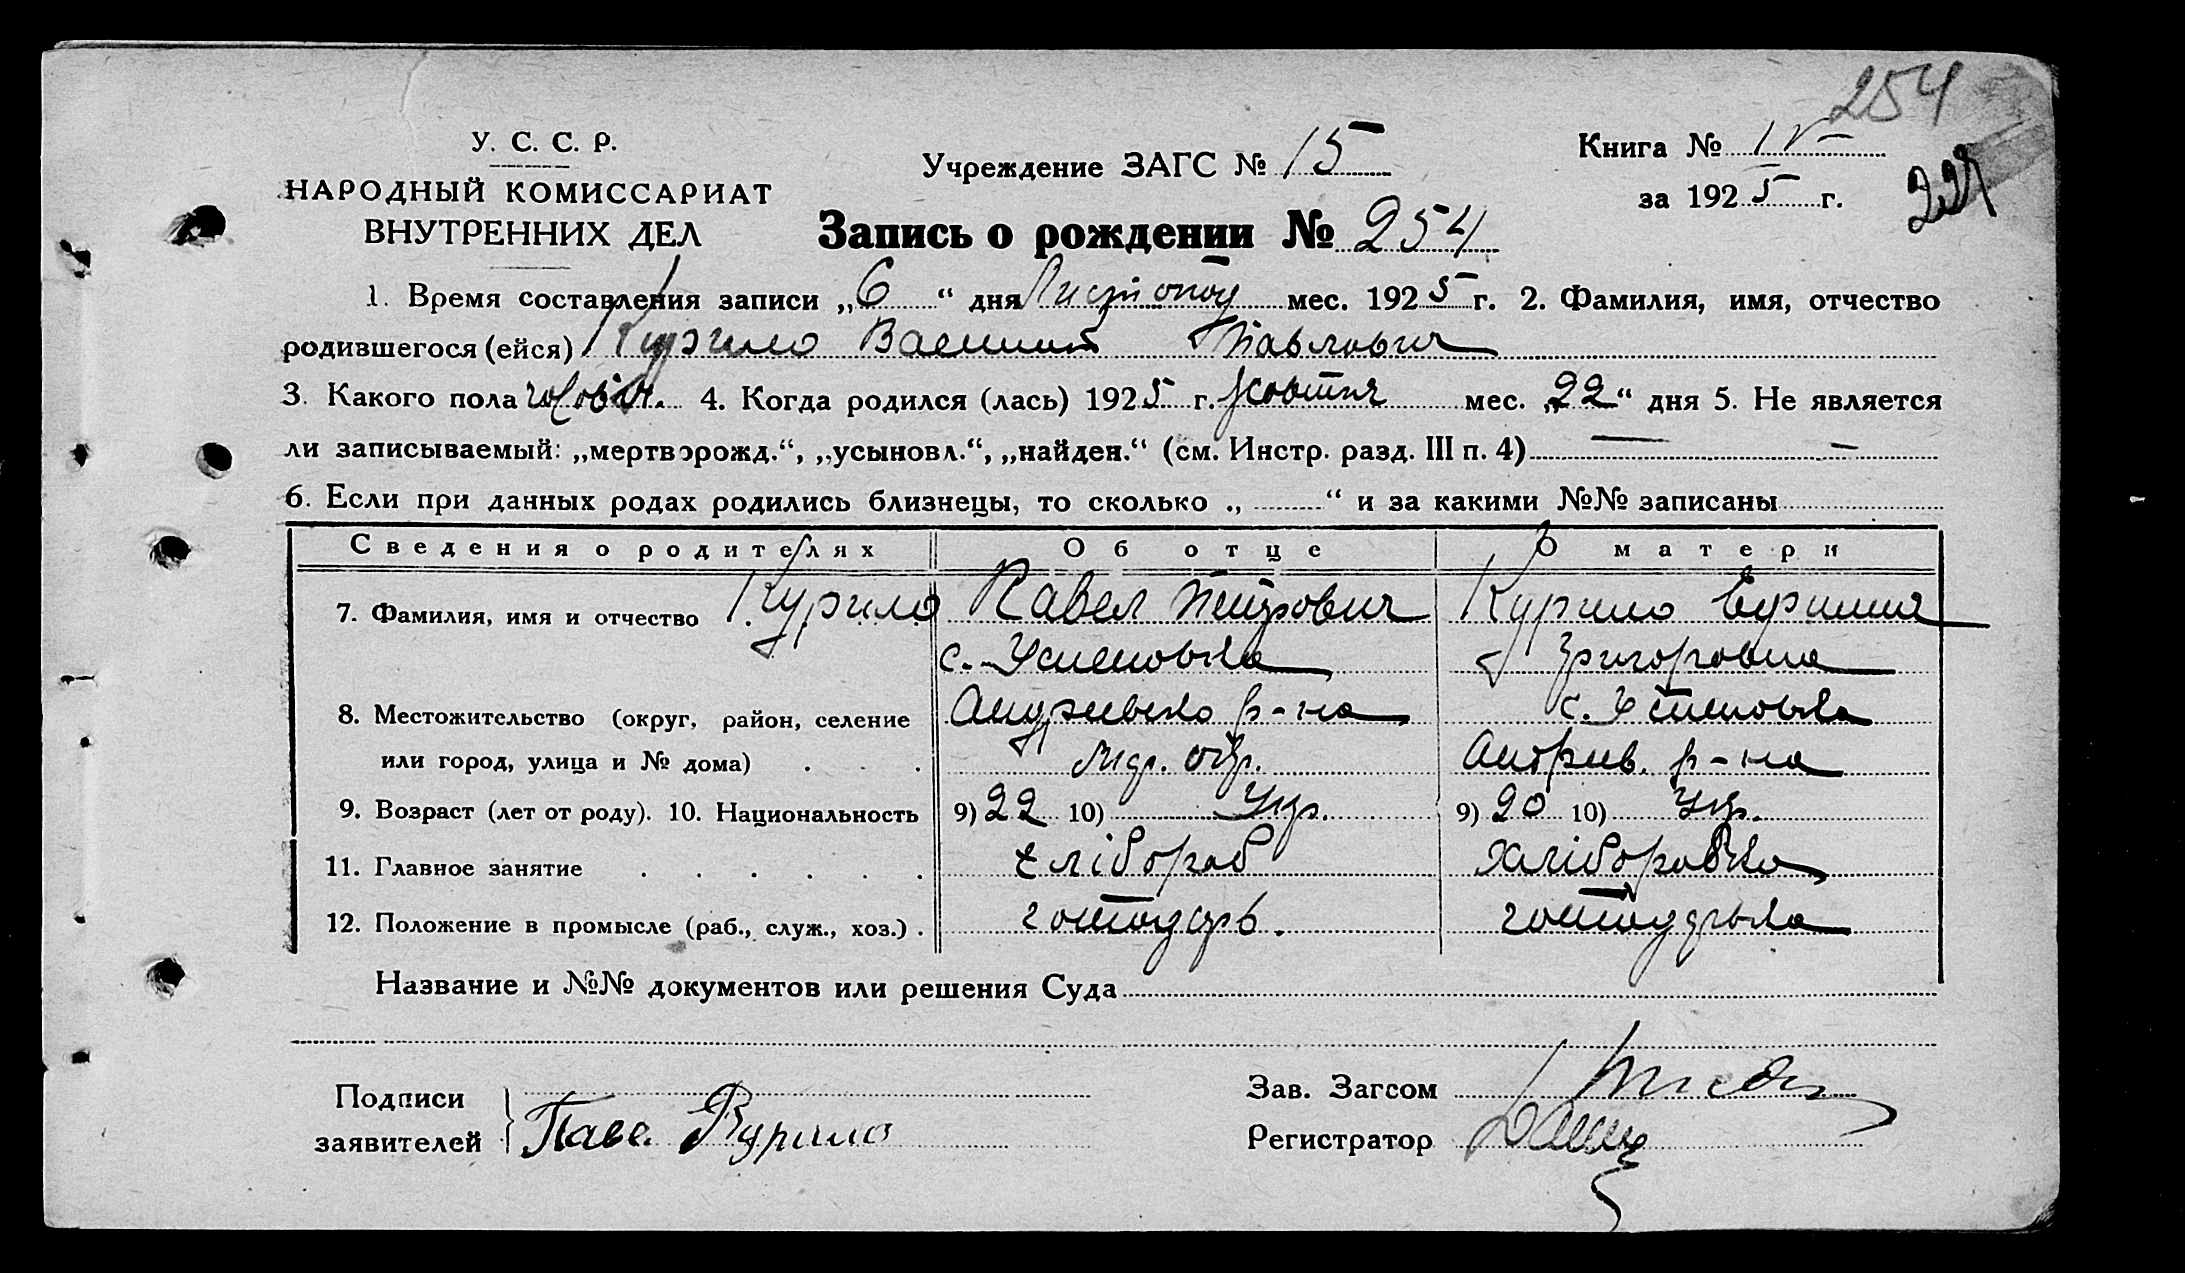 254
У. С. С. Р.
НАРОДНЫЙ КОМИССАРИАТ
ВНУТРЕННИХ ДЕЛ
Учреждение ЗАГС № 15
Книга № IV
за 1925 г.
Запись о рождении № 254
1. Время составления записи „6“ дня Листопад мес. 1925 г. 2. Фамилия, имя, отчество
родившегося (ейся) Курило Павлович
3. Какого пола чоловіч. 4. Когда родился (лась) 1925 г. Жовтня мес. „22“ дня 5. Не является
ли записываемый: „мертворожд.“, „усыновл.“, „найден.“ (см. Инстр. разд. III п. 4) — —
6. Если при данных родах родились близнецы, то сколько „ “ и за какими №№ записаны
Сведения о родителях Об отце О матери
7. Фамилия, имя и отчество Курило Павел Петрович Курило
с. Успеновка Григоровна
8. Местожительство (округ, район, селение р-на с. Успеновка
или город, улица и № дома) р-на
9. Возраст (лет от роду). 10. Национальность 9) 22 10) Укр. 9) 20 10) Укр.
11. Главное занятие хлібороб Хліборобка
12. Положение в промысле (раб., служ., хоз.)
Название и №№ документов или решения Суда
Подписи
заявителей Курило
Зав. Загсом
Регистратор